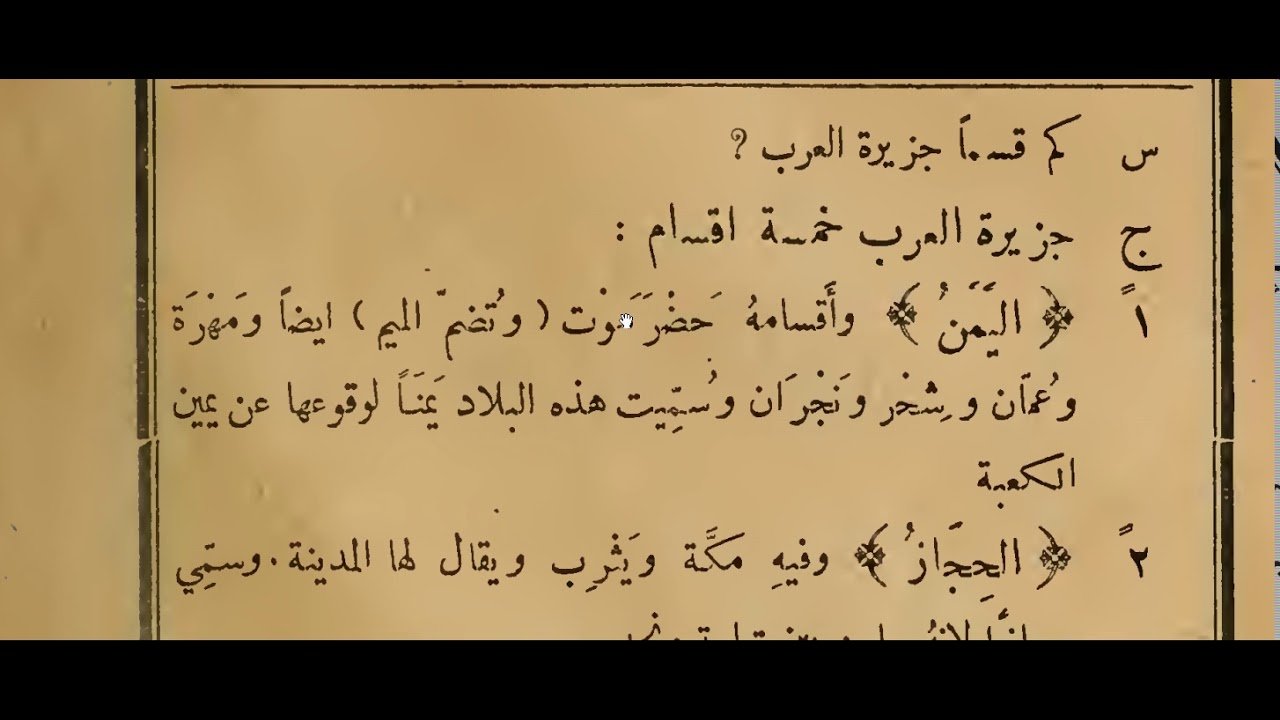 س كم قسماً جزيرة العرب ?
ج جزيرة العرب خمسة اقسام :
١ً ﴿ اليَمَنُ ﴾ وأَقسامهُ حَضْرَمَوْت ( وتُضمّ الميم ) ايضاً ومَهْرَة
وعُمَان وشِخْر ونَجْرَان وسُمِّيت هذه البلاد يَمَنَاً لوقوعها عن يمين
الكعبة
٢ً ﴿ الحِجَازُ ﴾ وفيهِ مكَّة ويَثْرِب ويقال لها المدينة . وسمِّي